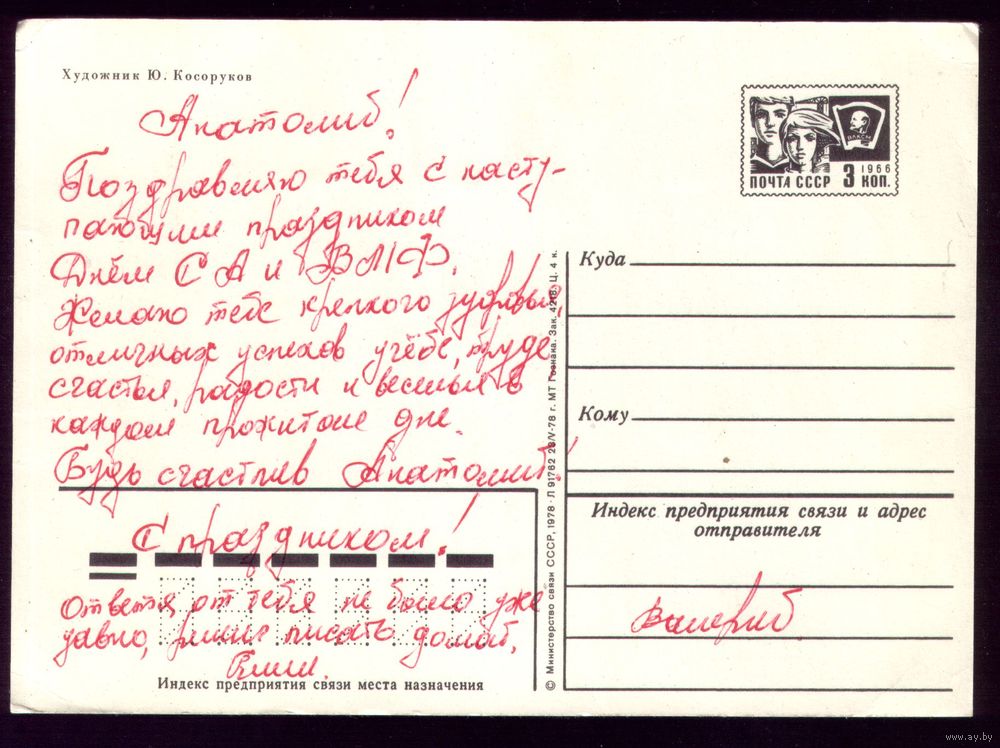 Художник Ю. Косоруков
Анатолий!
Поздравляю тебя с насту-
пающим праздником
Днём СА и ВМФ.
Желаю тебе крепкого здоровья,
отличных успехов учёбе, труде
счастья, радости и веселья в
каждом прожитом дне.
Будь счастлив Анатолий!
С праздником!
Ответа от тебя не было уже
давно, решил писать домой.
Пиши.
Индекс предприятия связи места назначения
© Министерство связи СССР, 1978 · Л 91762 23/V-78 г. МТ Гознака. Зак. 4218. Ц. 4 к.
ВЛКСМ
1966
ПОЧТА СССР 3 КОП.
Куда
Кому
Индекс предприятия связи и адрес
отправителя
Валерий
www.ay.by